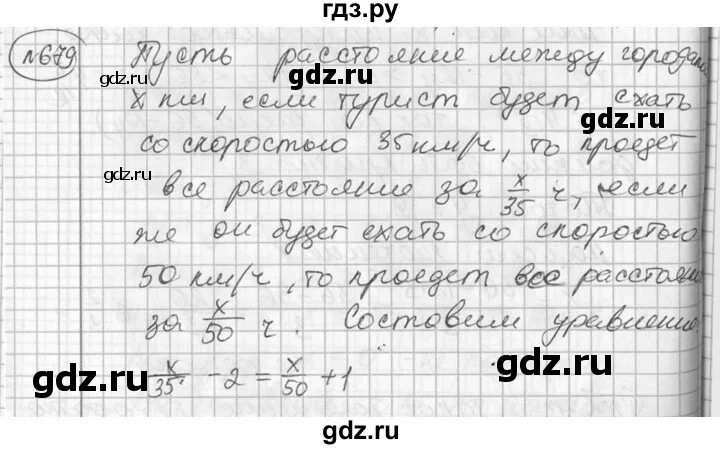 гдз.ру
№679 Пусть расстояние между городами
x км, если турист будет ехать
со скоростью 35 км/ч, то проедет
все расстояние за x/35 ч, если
же он будет ехать со скоростью
50 км/ч, то проедет все расстоян
за x/50 ч. Составим уравнение
x/35 - 2 = x/50 + 1
gdz.ru
gdz.ru
gdz.ru
gdz.ru
gdz.ru
gdz.ru
gdz.ru
gdz.ru
gdz.ru
gdz.ru
gdz.ru